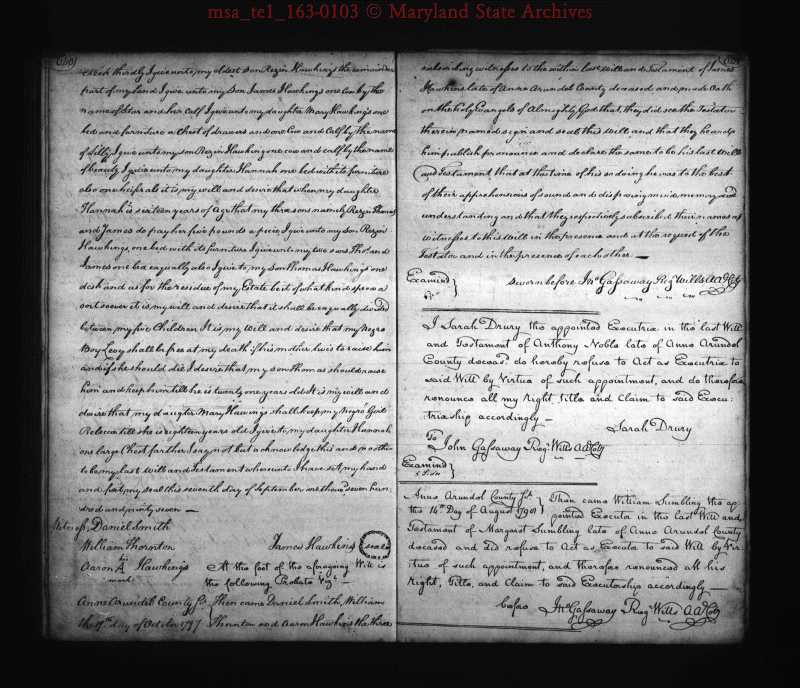 msa_te1_163-0103 © Maryland State Archives
creek thirdly I give unto my oldest son Rezin Hawkings the remainder
part of my land I give unto my Son James Hawkings one Cow by the
name of Star and her Calf I give unto my daughter Mary Hawkings one
bed and furniture a Chest of drawers and one Cow and Calf by the name
of Lilly I give unto my son Rezin Hawking one cow and calf by the name
of beauty I give unto my daughter Hannah one bed with its furniture
also one heifer als it is my will and desire that when my daughter
Hannah is sixteen years of Age that my three sons namely Rezin Thomas
and James do pay her five pounds a piece, I give unto my Son Rezin
Hawkings, one bed with its furniture I give unto my two sons Thos. and
James one bed eaqually also I give to my Son Thomas Hawkings one
desk and as for the residue of my Estate be it of what kind spece a
sort soever it is my will and desire that it shall be eaqually divided
between my five Children It is my Will and desire that my Negro
Boy Levy shall be free at my death if his mother lives to raise him
and if she should die I desire that my son Thom as should raise
him and keep him till he is twenty one years old It is my will and
desire that my daughter Mary Hawings shall keep my Negro Girl
Rebecca till she is eighteen years old I give to my daughter Hannah
one large Chest farther I say not but acknowledge this and no other
to be my last will and Testament whereunto I have set my hand
and fixt my seal this seventh day of September one thousd. seven hun:
dred and ninty seven —
Witness Daniel Smith
William Thornton James Hawkings seal
Aaron his A mark Hawkings At the foot of the aforegoing Will is
the following Probate Vizt —
Anne Arundel County Sst. Then came Daniel Smith, William
the 17th day of October 1797 Thornton and Aaron Hawkins the three
subscribing witnesses to the within last will and Testament of James
Hawkins late of Anne Arundel County deceased and made Oath
on the Holy Evangels of Almighty God that, they did see the Testator
therein named sign and seal this will and that they heard
him publish pronounce and declare the same to be his last Will
and Testament that at the time of his so doing he was to the best
of their apprehensions of sound and disposing mind, memory and
understanding and that they respectively subscribed their names as
witnesses to this Will in the presence and at the request of the
Testator and in the presence of each other —
Examind
sworn before Jno. Gassaway Regr. Wills AA Coty
I Sarah Drury the appointed Executrix in the last Will
and Testament of Anthony Noble late of Anne Arundel
County deceasd. do hereby refuse to Act as Executrix to
said Will by Virtue of such appointment, and do therefore
renounce all my right, title and Claim to said Execu:
trixship accordingly —
Sarah Drury
To John Gassaway Regr. Wills AA Coty
Examind
Anne Arundel County Sst. Then came William Sumbling the ap:
the 14th Day of August 1790 pointed Executor in the last Will and
Testament of Margaret Sumbling late of Anne Arundel County
deceased and did refuse to Act as Executor to said Will by Vir:
tue of such appointment, and therefore renounced all his
Right, Title, and Claim to said Executorship accordingly —
before Jno. Gassaway Regr. Wills AA Coty